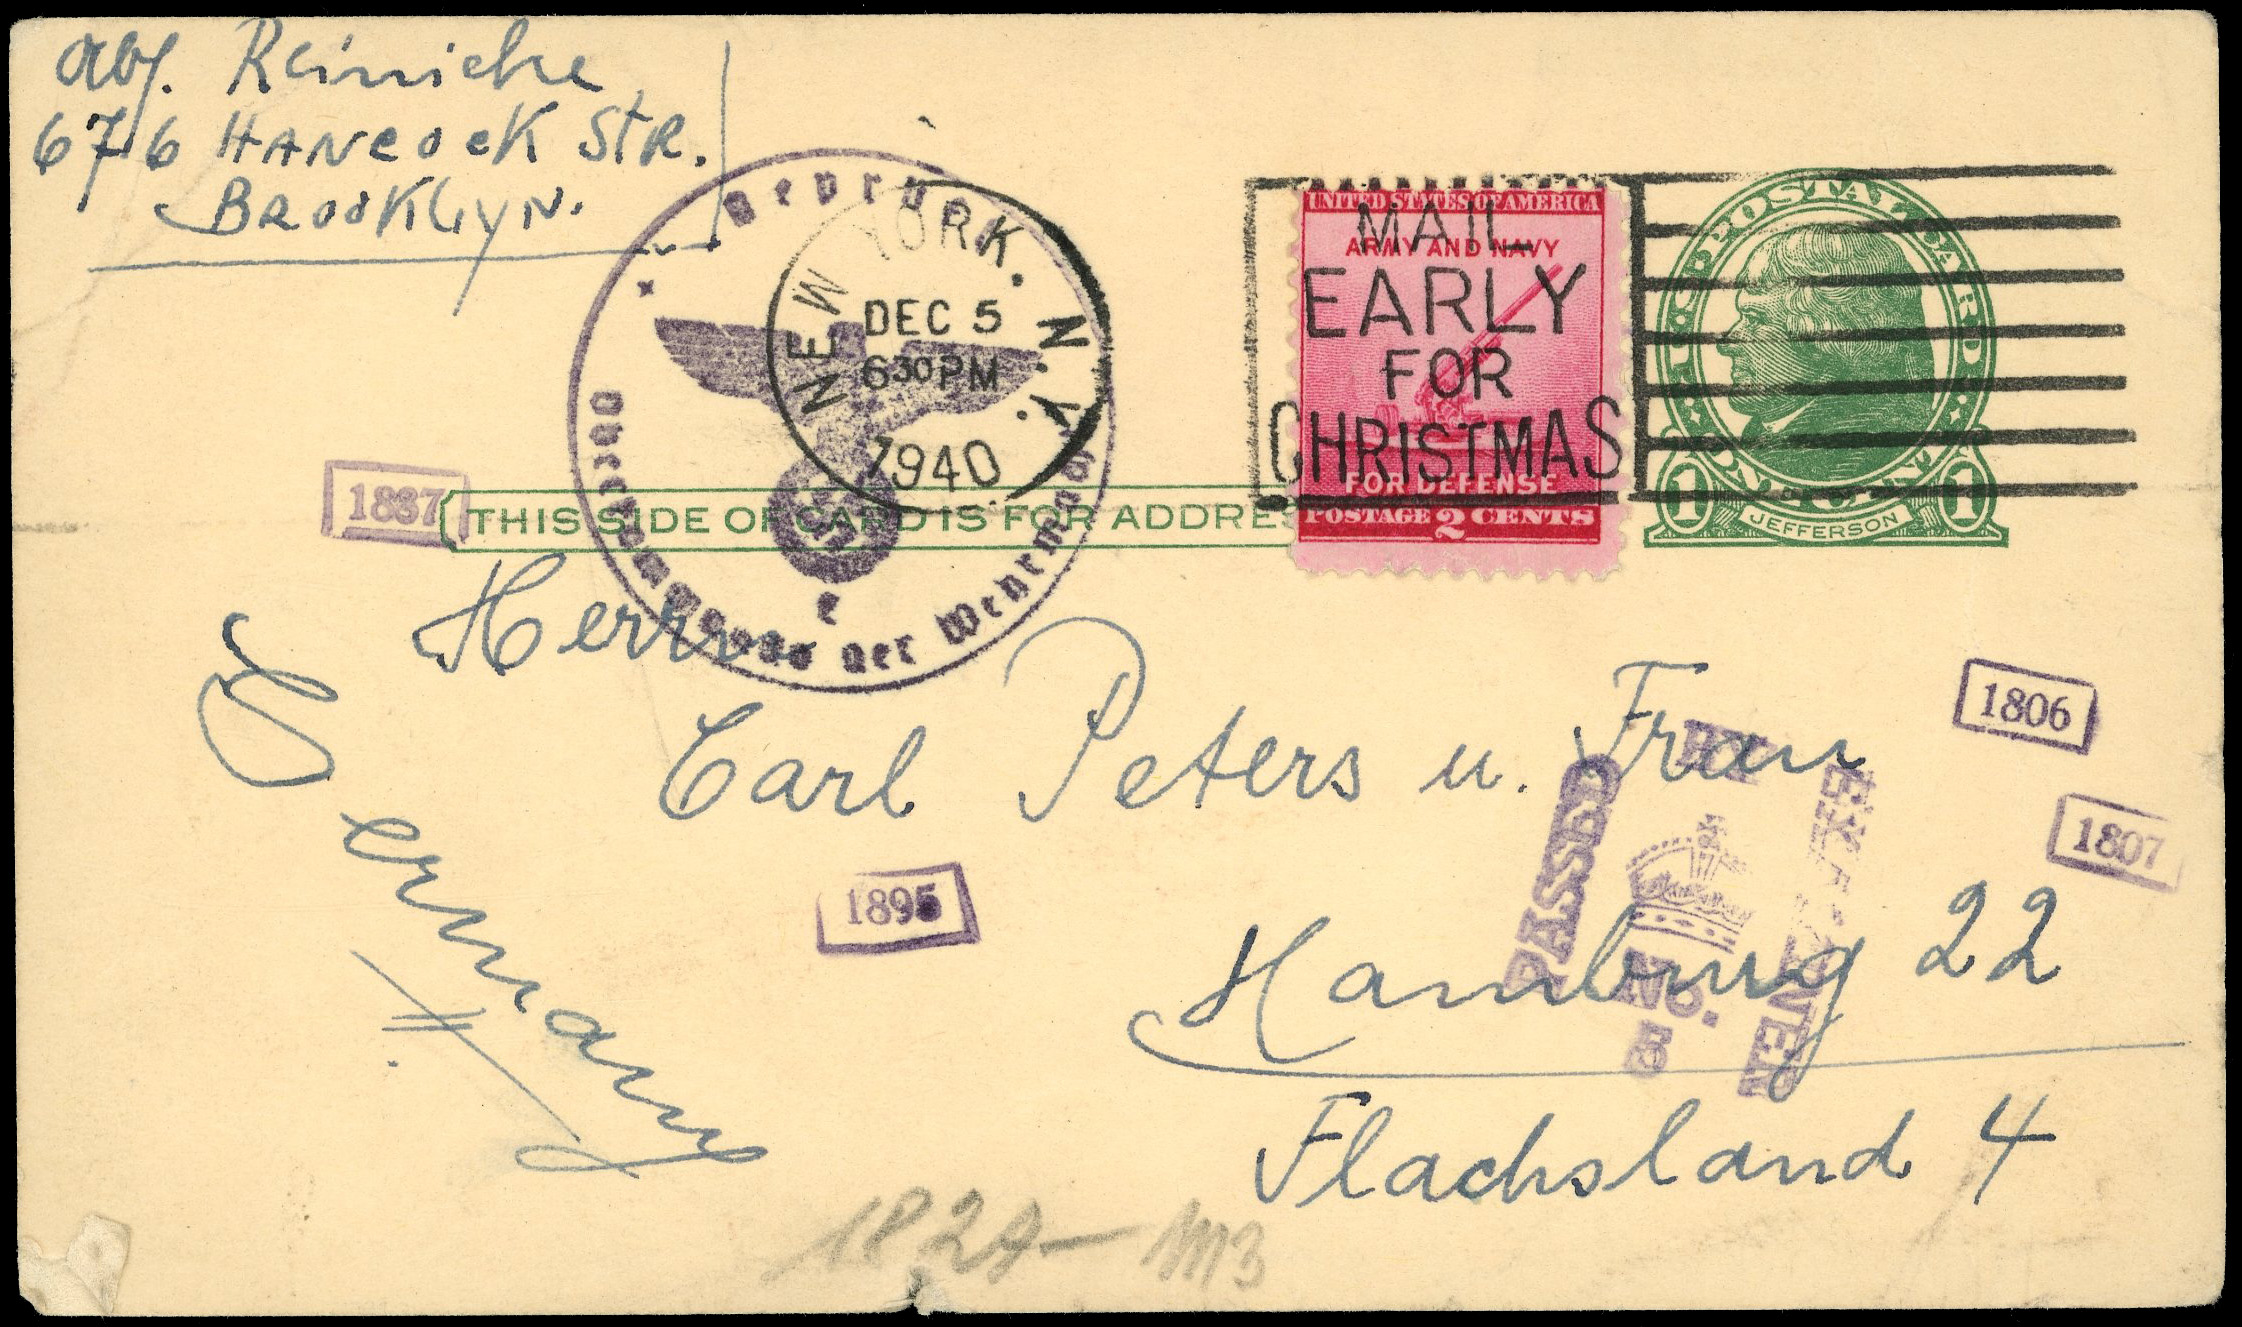 Abs. Reinicke
676 HANCOCK STR.
BROOKLYN.
Geprüft
Oberkommando der Wehrmacht
e
NEW YORK, N.Y.
DEC 5
6 30 PM
1940
MAIL
EARLY
FOR
CHRISTMAS
UNITED STATES OF AMERICA
ARMY AND NAVY
FOR DEFENSE
POSTAGE 2 CENTS
U.S. POSTAL CARD
ONE CENT
1 JEFFERSON 1
1887
THIS SIDE OF CARD IS FOR ADDRE
Herrn
Carl Peters u. Frau
Hamburg 22
Flachsland 4
Germany
1806
1807
1895
PASSED
BY
EXAMINER
No.